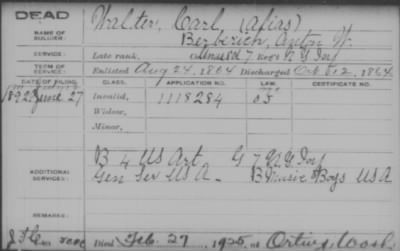 DEAD
Walter, Carl (alias)
NAME OF SOLDIER:
Berberich, Anton W.
SERVICE:
Late rank, 7 Reg't N Y Inf
TERM OF SERVICE:
Enlisted Aug 24, 1864 Discharged Oct 1864
DATE OF FILING. CLASS. APPLICATION NO. LAW. CERTIFICATE NO.
1892 June 27 Invalid, 1118284
Widow,
Minor,
B 4 US Art. G 7 N.Y. Inf
ADDITIONAL SERVICES:
Gen Ser USA - B Music Boys USA
REMARKS:
Died Feb. 27 1925 at Orting, Wash.